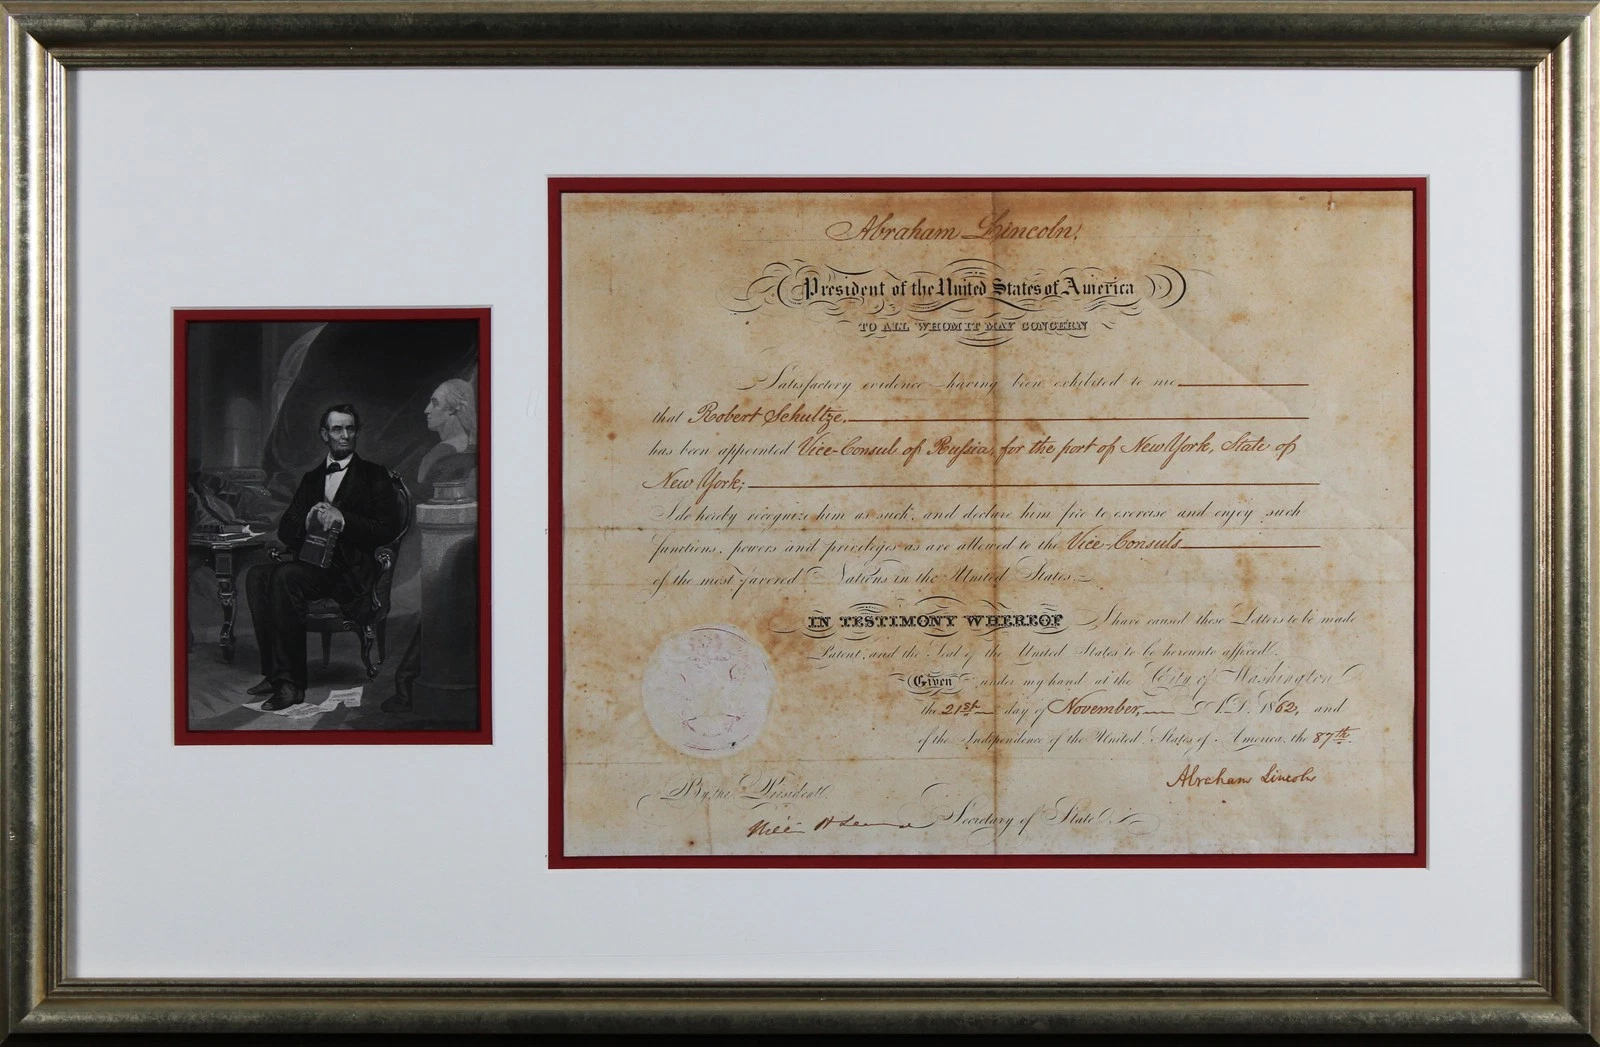 Abraham Lincoln,
President of the United States of America
TO ALL WHOM IT MAY CONCERN
Satisfactory evidence having been exhibited to me
that Robert Schultze,
has been appointed Vice-Consul of Russia, for the port of New York, State of
New York;
I do hereby recognize him as such, and declare him free to exercise and enjoy such
functions, powers and privileges as are allowed to the Vice-Consuls
of the most favored Nations in the United States.
IN TESTIMONY WHEREOF I have caused these Letters to be made
Patent, and the Seal of the United States to be hereunto affixed.
Given under my hand at the City of Washington
the 21st day of November, A.D. 1862, and
of the Independence of the United States of America, the 87th.
Abraham Lincoln
By the President
Secretary of State